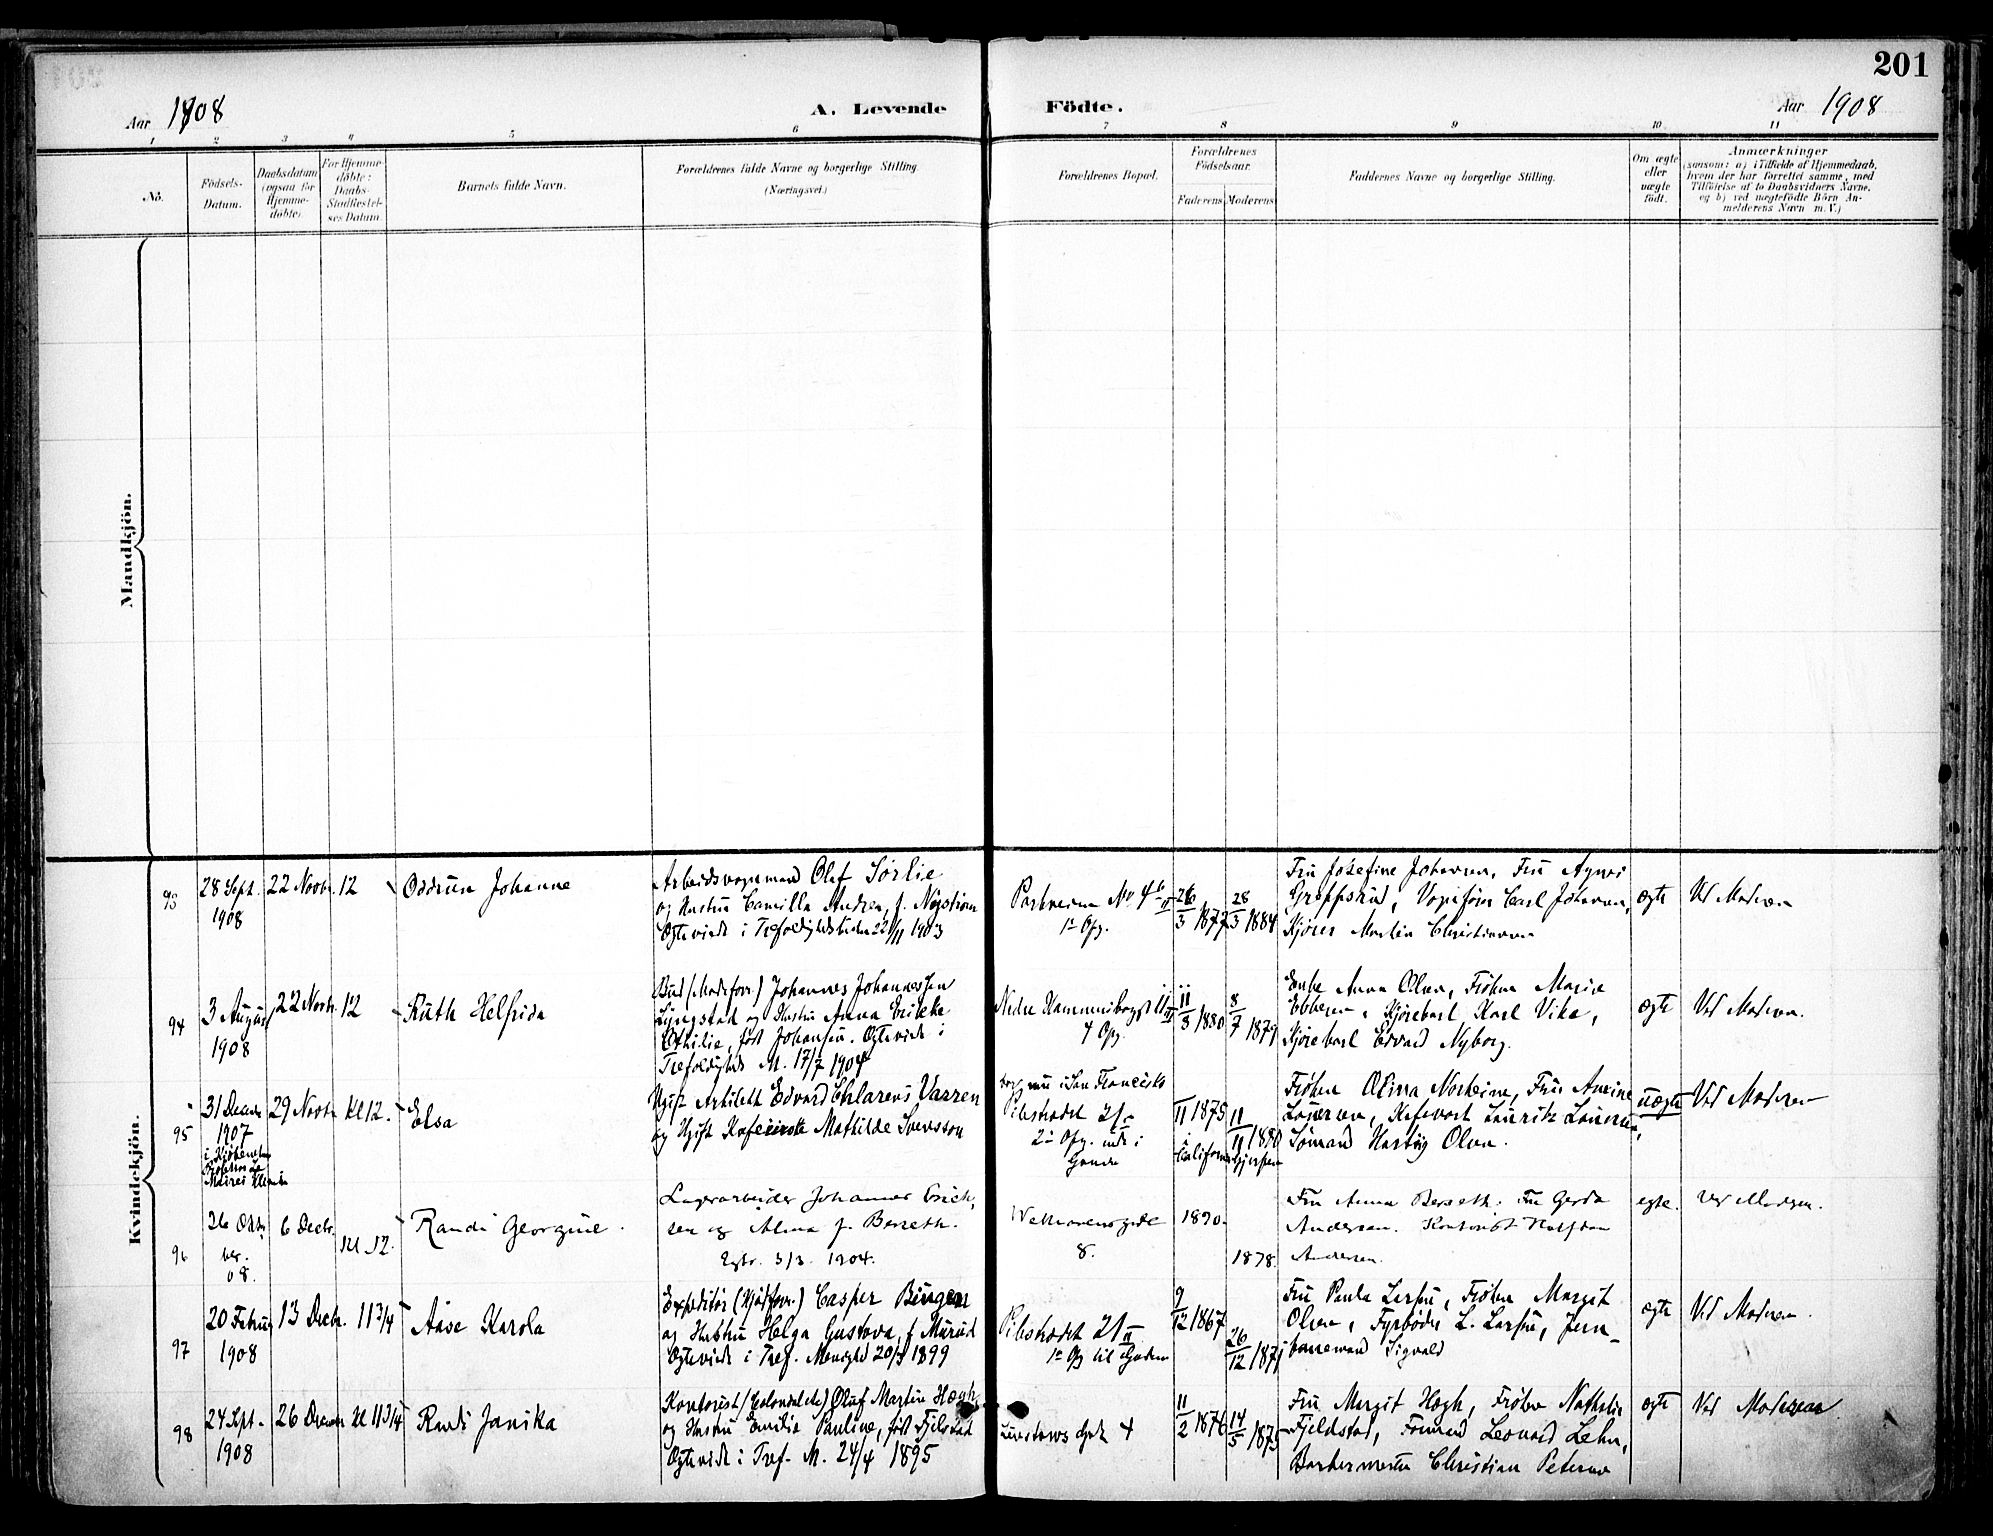 201
Aar 1908
A. Levende
Födte.
Aar 1908
1 2 3 4 5 6 7 8 9 10 11
No.
Födsels-
Datum.
Daabsdatum
(ogsaa for
Hjemme-
døbte).
For Hjemme-
døbte:
Daabs-
Stadfæstel-
ses Datum.
Barnets fulde Navn.
Forældrenes fulde Navne og borgerlige Stilling.
(Næringsvei.)
Forældrenes Bopæl.
Forældrenes
Födselsaar.
Faderens Moderens
Faddernes Navne og borgerlige Stilling.
Om ægte
eller
uægte
født.
Anmærkninger
(saasom: a) i Tilfælde af Hjemmedaab,
hvem der har forrettet samme, med
Tilföielse af to Daabsvidners Navne,
og b) ved uægtefödte Börn An-
melderens Navn m. V.)
Mandkjön.
Kvindekjön.
93
28 Sept.
1908
22 Novbr.
12
Oddrun Johanne
Arbeidsvognmand Olef Sörlie
og Hustru Camilla Andrea, f.
Ægteviede i Trefoldighedskirken 22/11 1903
Parkveien No 4
1ste Opg.
26/3 1877
28/3 1884
Fru Josefine Johansen, Fru Agnes
Carl Johansen,
Kjörer Martin Christiansen
ægte
Ved Moderen
94
3 August
1908
22 Novbr.
12
Ruth Helfrida
Bud (Modeforr.) Johannes Johannessen
Lyngstad og Hustru Anna Erikke
Othilie, født Johansen. Ægteviede i
Trefoldigheds M. 17/7 1904
Nedre Hammersborggt 11
4 Opg.
11/3 1880
8/7 1879
Enke Anna Olsen, Fröken Marie
Ebbesen, Kjörekarl Karl Vike,
Kjörekarl Edvard Nyborg.
ægte
Ved Moderen.
95
31 Decbr
1907
29 Novbr
Kl 12.
Elsa
Ugift Arkitekt Edvard Chlarens Varren
og Ugift Mathilde Svensson
bor nu i San Francisco
Pilestrædet 21
2den Opg. inde i
Gaarden
11 1875
i Californien
11/11 1880
Fröken Olivia Fru Anine
Laursen, Kafevært Lauritz Laursen,
Sömand Hartvig Olsen.
uægte
Ved Moderen
96
26 Okto
ber.
08.
6 Decbr.
Kl 12.
Randi Georgine.
Lagerarbeider Johannes Erich-
sen og Alma f. Berseth.
Egtv. 3/3. 1904.
Welhavensgade
8.
1880.
1878.
Fru Anna Berseth. Fru Gerda
Andersen. Kontorist Halfdan
Andersen.
egte.
Ved Moderen.
97
20 Februar
1908
13 Decbr.
11 3/4
Aase Karola
Expeditör (Kjödforr.) Casper Bingen
og Hustru Helga Gustava, f. Murud
Ægteviede i Tref. Menighed 20/3 1899
Pilestrædet 21
1ste Opg til Gaden
9/12 1867
26/12 1871
Fru Paula Larsen, Fröken Margit
Olsen, Fyrböder L. Larsen, Jern-
banemand Sigvald
ægte
Ved Moderen.
98
24 Sept.
1908
26 Decbr
Kl 11 3/4
Randi Janika
Kontorist Oluf Martin Høgh
og Hustru Emilie Pauline, født Fjelstad
Ægteviede i Tref. M. 24/4 1895
4
11/2 1876
14/5 1875
Fru Margit Høgh, Fröken Nathalie
Fjeldstad, Formand Leonard Lehn,
Barbermester Christian Petersen
ægte
Ved Moderen